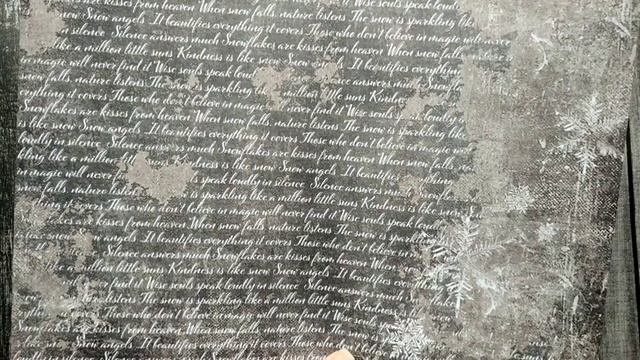 are kisses from heaven When snow falls, nature listens The snow is Wise souls speak loudly
Snow angels It beautifies everything it covers Those who don't believe in magic will never
in silence Silence answers much Snowflakes are kisses from heaven When snow falls, nature
like a million little suns Kindness is like snow Snow It beautifies everything
in magic will never find it Wise souls speak answers much
snow falls, nature listens The snow is sparkling million little suns Kindness
everything it covers Those who don't believe in magic never find it Wise souls
Snowflakes are kisses from heaven When snow falls, nature listens The snow is sparkling like
is like snow Snow angels It beautifies everything it covers Those who don't believe in magic
loudly in silence Silence answers much Snowflakes are kisses from heaven When snow falls,
like a million little suns Kindness is like snow Snow angels It beautifies everything
in magic will never speak loudly in silence Silence answers much
snow falls, nature listens The snow is sparkling like a million little suns Kindness is like snow
everything it Those who don't believe in magic will never find it Wise souls speak
are kisses from heaven When snow falls, nature listens The snow is sparkling
snow angels It beautifies everything it covers Those who don't believe
Silence answers much Snowflakes are kisses from heaven When
like a million little suns Kindness is like snow Snow angels It beautifies everything
never find it Wise souls speak loudly in silence Silence answers much Snow
listens The snow is sparkling like a million little suns Kindness
covers Those who don't believe in magic will never find it Wise souls
Snowflakes are kisses from heaven When snow falls, nature listens The snow is
is like snow Snow angels It beautifies everything it covers Those who don't believe
loudly in silence Silence answers much Snowflakes are kisses from